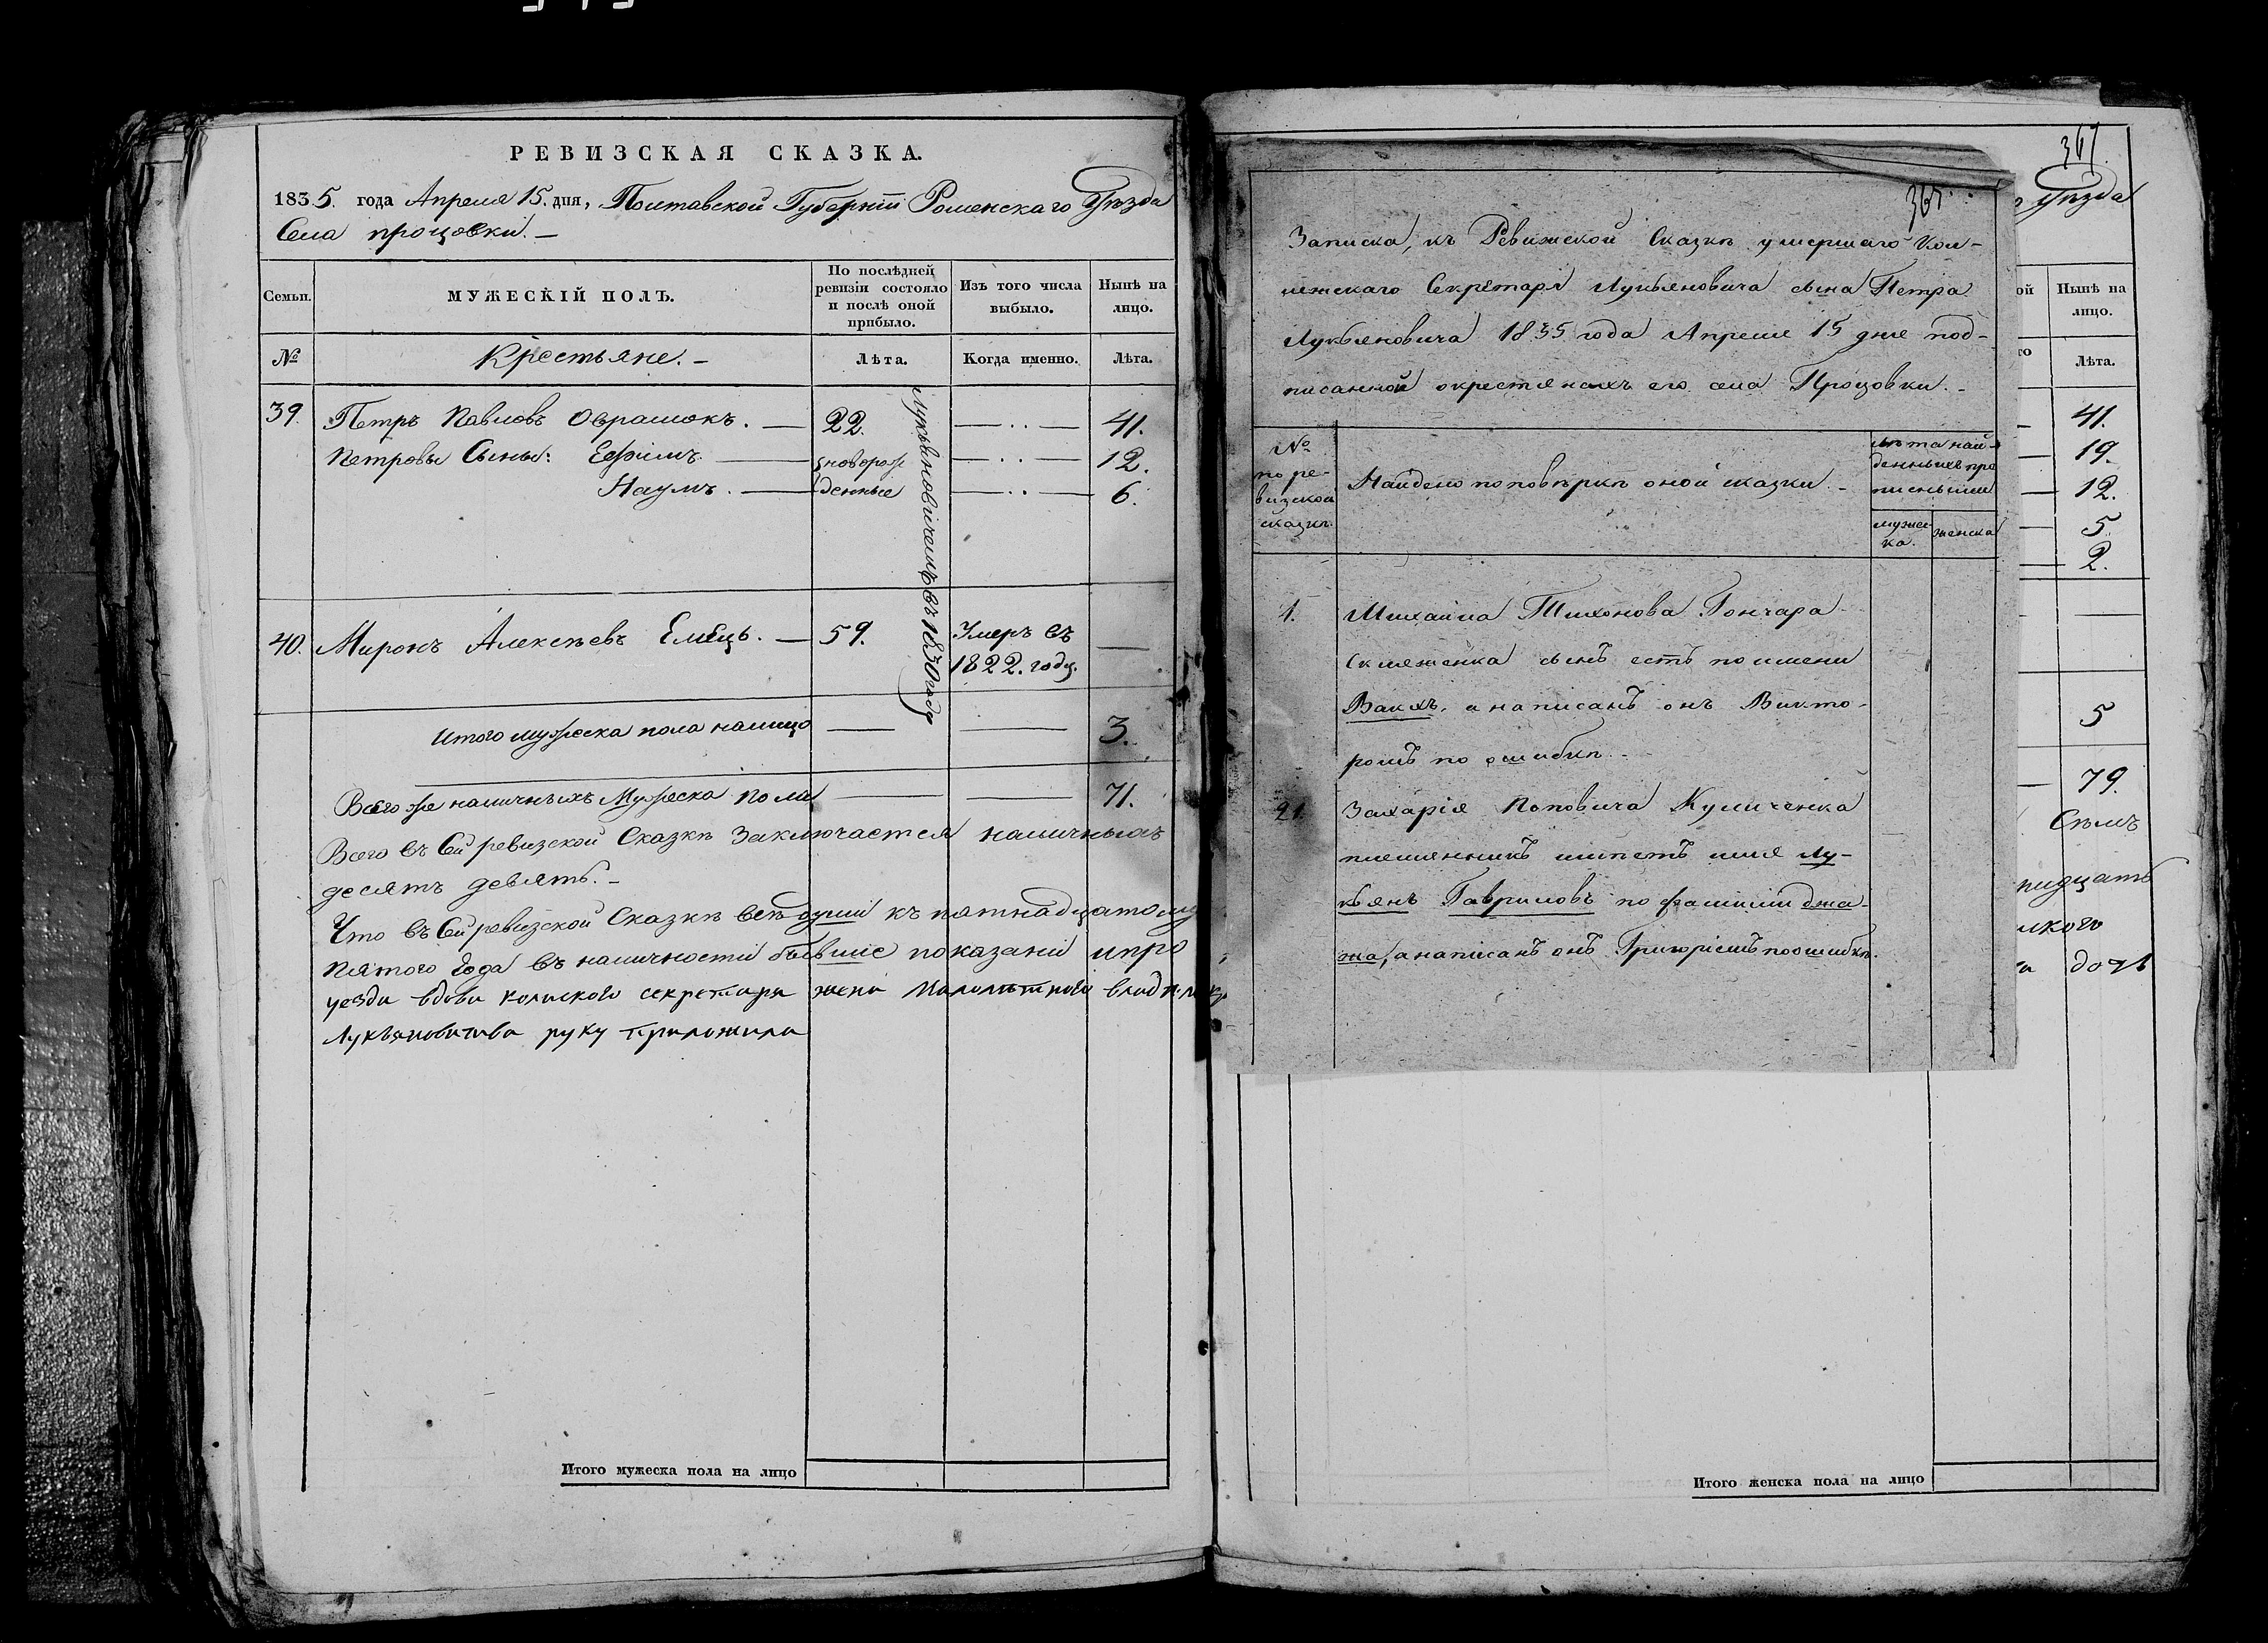 РЕВИЗСКАЯ СКАЗКА.
1835. года Апреля 15. дня, Полтавской Губерніи Роменскаго Уѣзда
Села процовки.—
Семьи.
МУЖЕСКІЙ ПОЛЪ.
По послѣдней ревизіи состояло и послѣ оной прибыло.
Изъ того числа выбыло.
Нынѣ на лицо.
№
Крестьяне.—
Лѣта.
Когда именно.
Лѣта.
39. Петръ Павловъ Оврашокъ.— 22. —..— 41.
Петровы Сыны: Ефимъ.— новорож —..— 12.
Наумъ.— денные —..— 6.
Лукьяновичемъ въ 1830 году
40. Миронъ Алексѣевъ Емецъ.— 59. Умеръ въ —
1822. году.
Итого мужеска пола налицо — — 3.
Всего же наличныхъ Мужеска пола — — 71.
Всего въ Сей ревизской Сказкѣ Заключается наличныхъ
десятъ девять.—
Что въ Сей ревизской Сказкѣ всѣ души къ пятнадцатому
пятого года въ наличности бывшіе показани ипро
уезда вдова колиского секретаря жена Малолѣтного
руку приложила
Итого мужеска пола на лицо
367.
Уѣзда
365.
Записка, къ Ревижской Сказкѣ умершаго Кол-
лежскаго Секретаря Лукьяновича сына Петра
Лукьяновича 1835 года Апреля 15 дня под-
писанной окрестянехъ его села Процовки.—
№ по ре-
визской
сказки.
Найдено поповѣркѣ оной сказки.—
лѣта най-
денныхъ про
писными
мужес-
ка.
женска
1. Михайла Тихонова Гончара
сынъ есть по имени
Вакхъ, а написанъ онъ Викто-
ромъ по ошибкѣ.—
21. Захарія Поповича Куличенка
племянникъ имѣетъ имя Лу-
кьянъ Гавриловъ по фамиліи джа-
жа, а написанъ онъ Григоріемъ поошибкѣ.
ой
Нынѣ на лицо.
Лѣта.
— 41.
— 19.
— 12.
— 5.
— 2.
—
5
— 79.
Сѣмъ
ридцать
лкого
дочь
Итого женска пола на лицо